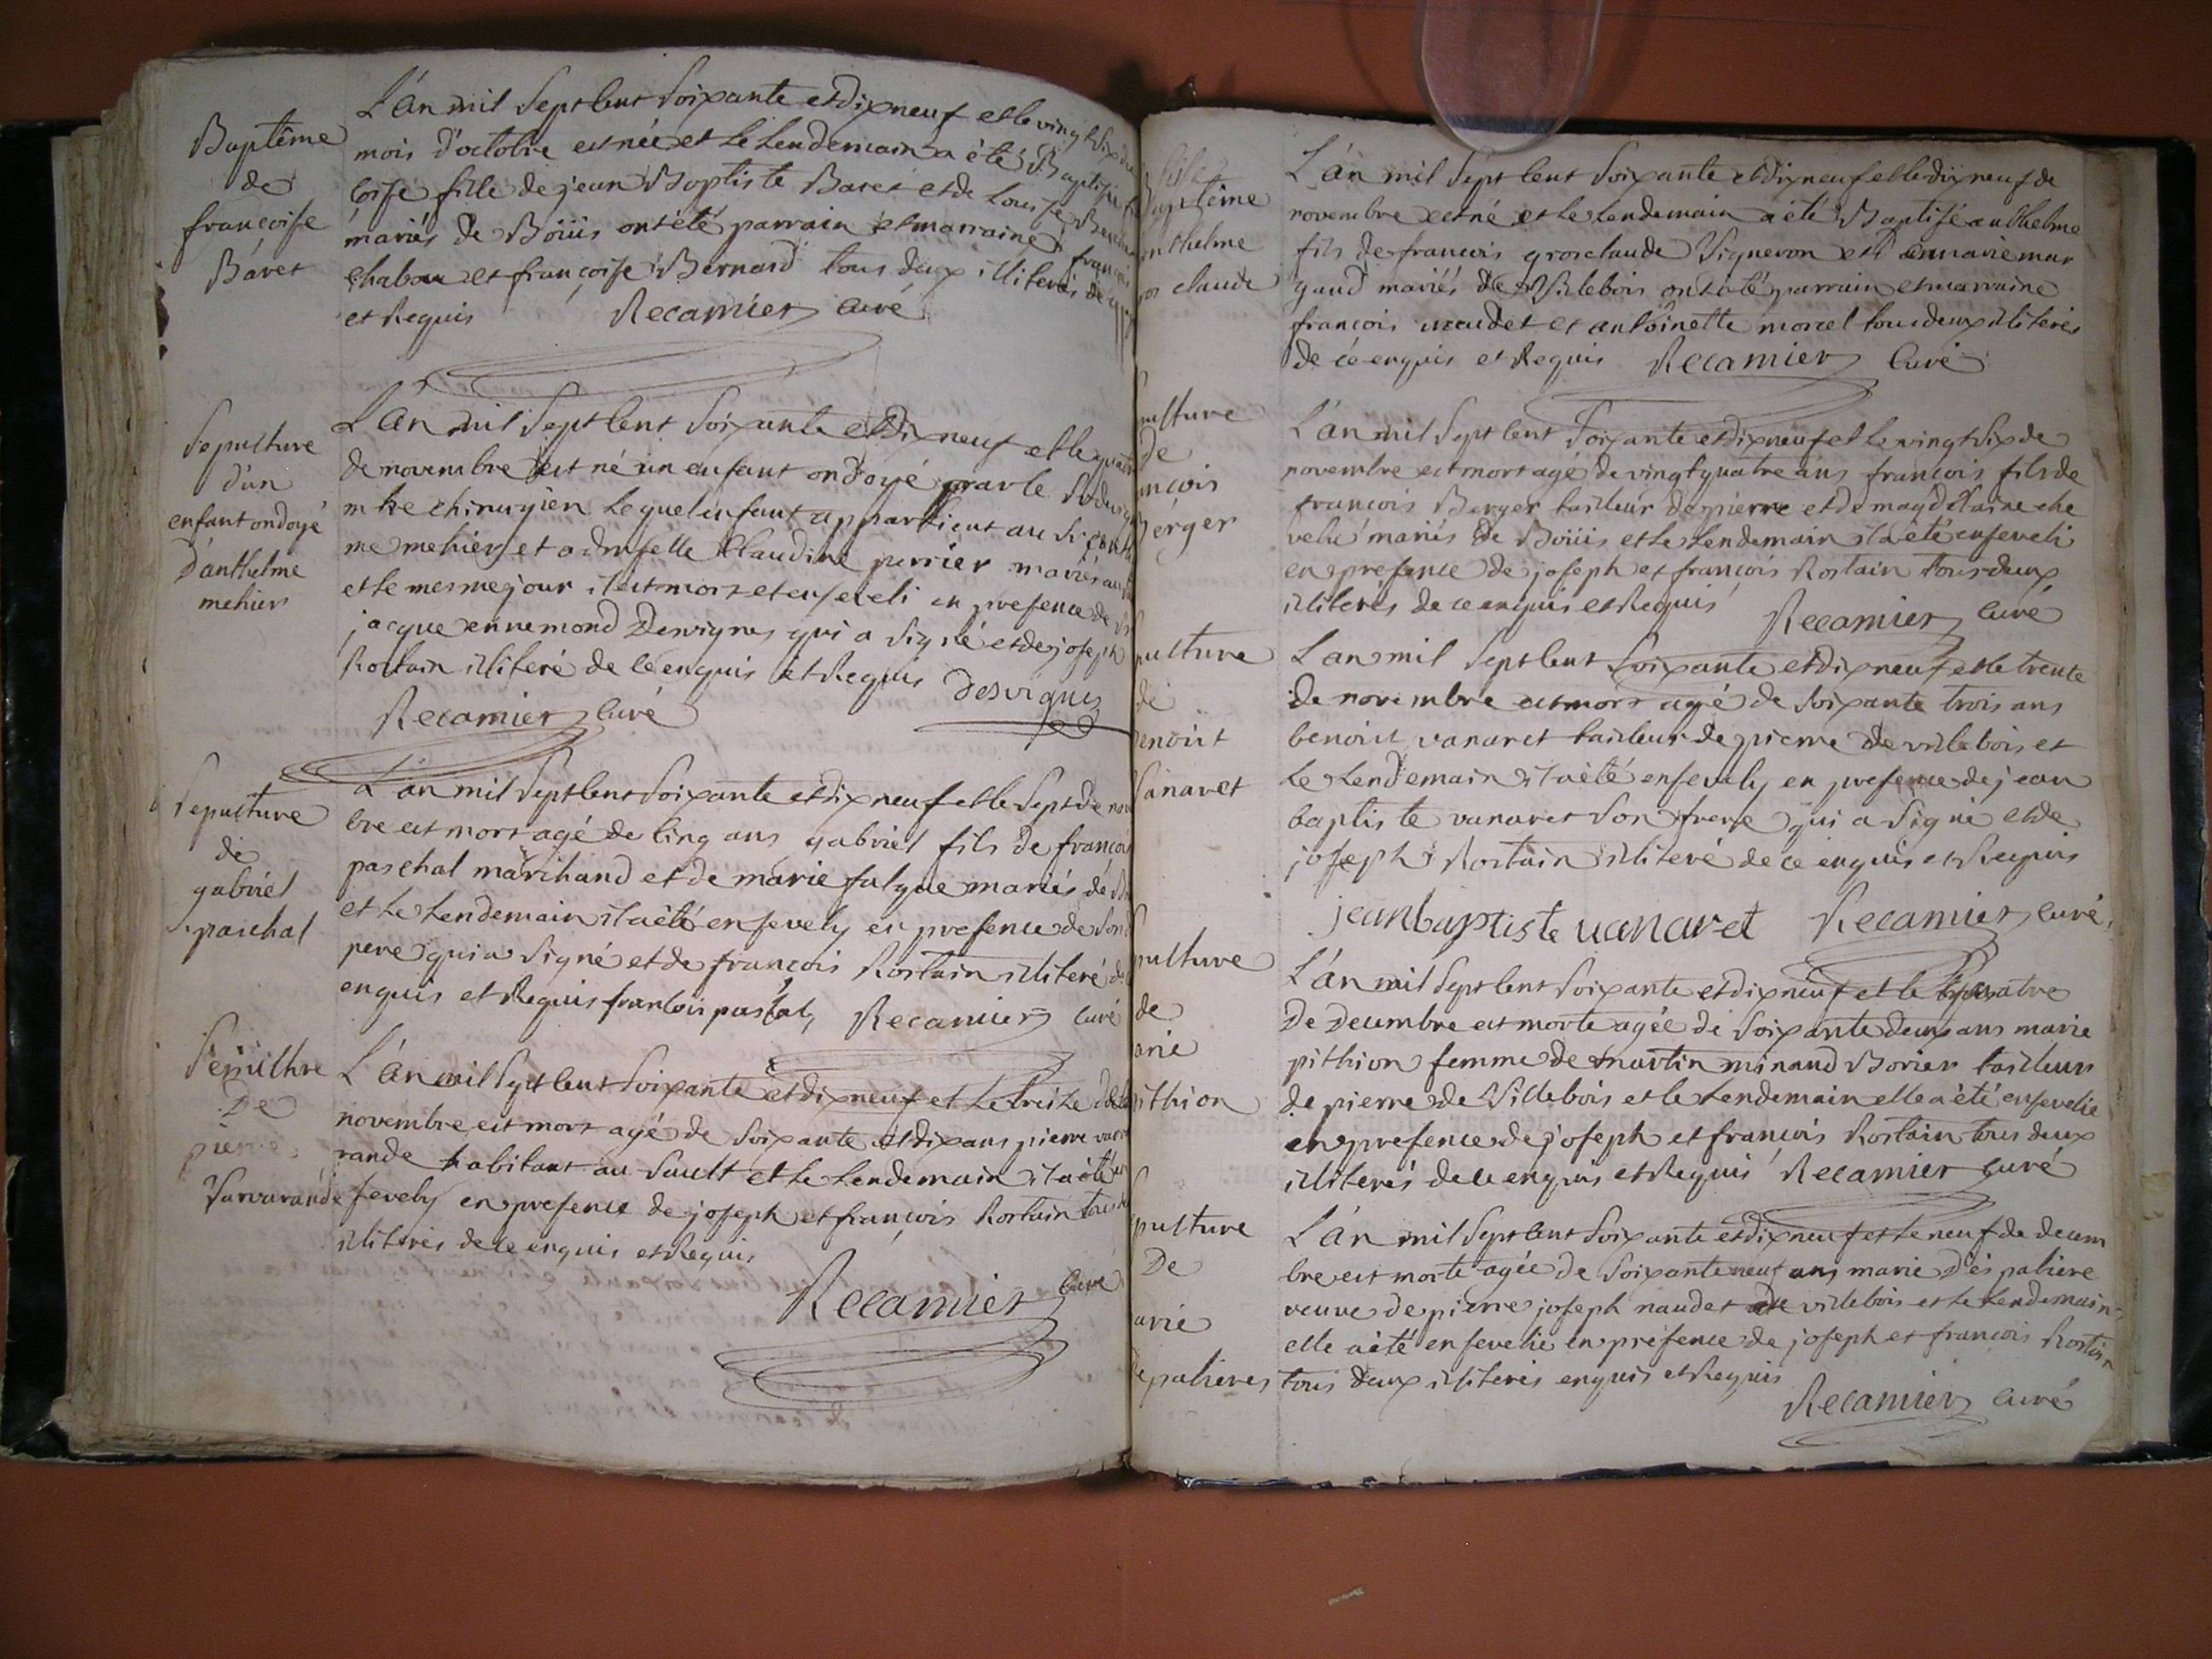 Baptême
de
francoise
Baret
L'an mil Sept Cent Soixante et dix neuf et le vingt six du
mois d'octobre est née et le Lendemain a été Baptisée
coise fille de jean Baptiste Baret et de Louise
mariés de Boüis ont été parrain et marraine françois
chabou et françoise Bernard tous deux illiterés de
et Requis Recamier Curé
Sepulture
d'un
enfant ondoyé
d'anthelme
mehier
L'an mil Sept Cent Soixante et dix neuf et le quatre
de novembre est né un enfant ondoyé par le
mtre chirurgien Lequel enfant appartient au Sr
me mehier et a dmoiselle Claudine perrier mariés
et le mesme jour il est mort et enseveli en presence de Sr
jacque ennemond Desvignes qui a Signé et de joseph
Rostain illiteré de ce enquis et Requis Desvignes
Recamier Curé
Sepulture
de
gabriel
paschal
L'an mil Sept Cent Soixante et dix neuf et le Sept de nov
bre est mort agé de Cinq ans gabriel fils de françois
paschal marchand et de marie falque mariés de
et le Lendemain il a été ensevely en presence de Son
pere qui a Signé et de françois Rostain illiteré de
enquis et Requis francois pascal Recamier Curé
Sepulture
De
pierre
Varvarande
L'an mil Sept Cent Soixante et dix neuf et Le treize de
novembre est mort agé de Soixante et dix ans pierre varva
rande habitant au Sault et le Lendemain il a été en
sevely en presence de joseph et françois Rostain tous
illiterés de ce enquis et Requis
Recamier Curé
Baptême
anthelme
gros claude
L'an mil Sept Cent Soixante et dix neuf et le dix neuf de
novembre est né et le Lendemain a été Baptisé anthelme
fils de francois grosclaude Vigneron et d'annarie mar
gaud mariés de Villebois ont été parrain et marraine
françois naudet et antoinette morcel tous deux illiterés
de ce enquis et Requis Recamier Curé
pulture
de
ancois
Berger
L'an mil Sept Cent Soixante et dix neuf et Le vingt Six de
novembre est mort agé de vingt quatre ans françois fils de
francois Berger tailleur de pierre et de magdelaine che
velu mariés de Boüis et le Lendemain il a été enseveli
en presence de joseph et françois Rostain tous deux
illiterés de ce enquis et Requis Recamier Curé
pulture
de
benoist
Vanaret
L'an mil Sept Cent Soixante et dix neuf et le trente
de novembre est mort agé de Soixante trois ans
benoist vanaret tailleur de pierre de villebois et
Le Lendemain il a été ensevely en presence de jean
baptiste vanaret Son frere qui a Signé et de
joseph Rostain illiteré de ce enquis et Requis
jean baptiste vanaret Recamier Curé
pulture
de
arie
pithion
L'an mil Sept Cent Soixante et dix neuf et le quatre
De Decembre est morte agée de Soixante deux ans marie
pithion femme de martin minand Borier tailleur
de pierre de Villebois et le Lendemain elle a été ensevelie
en presence de joseph et françois Rostain tous deux
illiterés de ce enquis et Requis Recamier Curé
pulture
De
arie
d'espalieres
L'an mil Sept Cent Soixante et dix neuf et le neuf de decem
bre est morte agée de Soixante neuf ans marie D'espaliere
veuve de pierre joseph naudet de villebois et le Lendemain
elle a été ensevelie en présence de joseph et francois Rostain
tous deux illiterés enquis et Requis
Recamier Curé